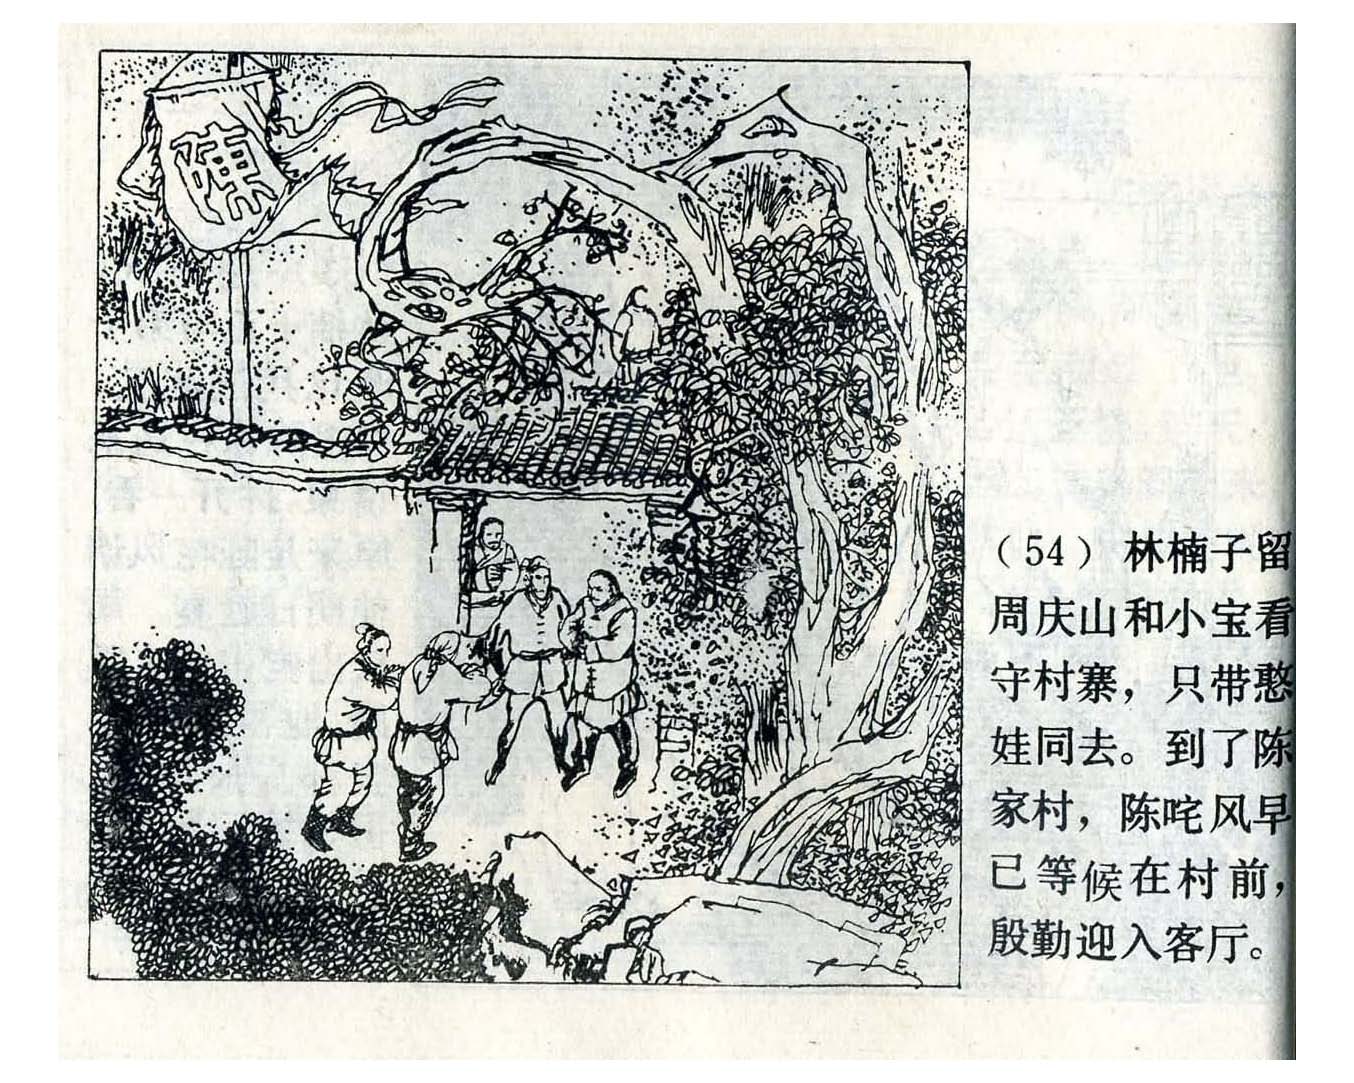 陳
（54）林楠子留
周庆山和小宝看
守村寨，只带憨
娃同去。到了陈
家村，陈咤风早
已等候在村前，
殷勤迎入客厅。